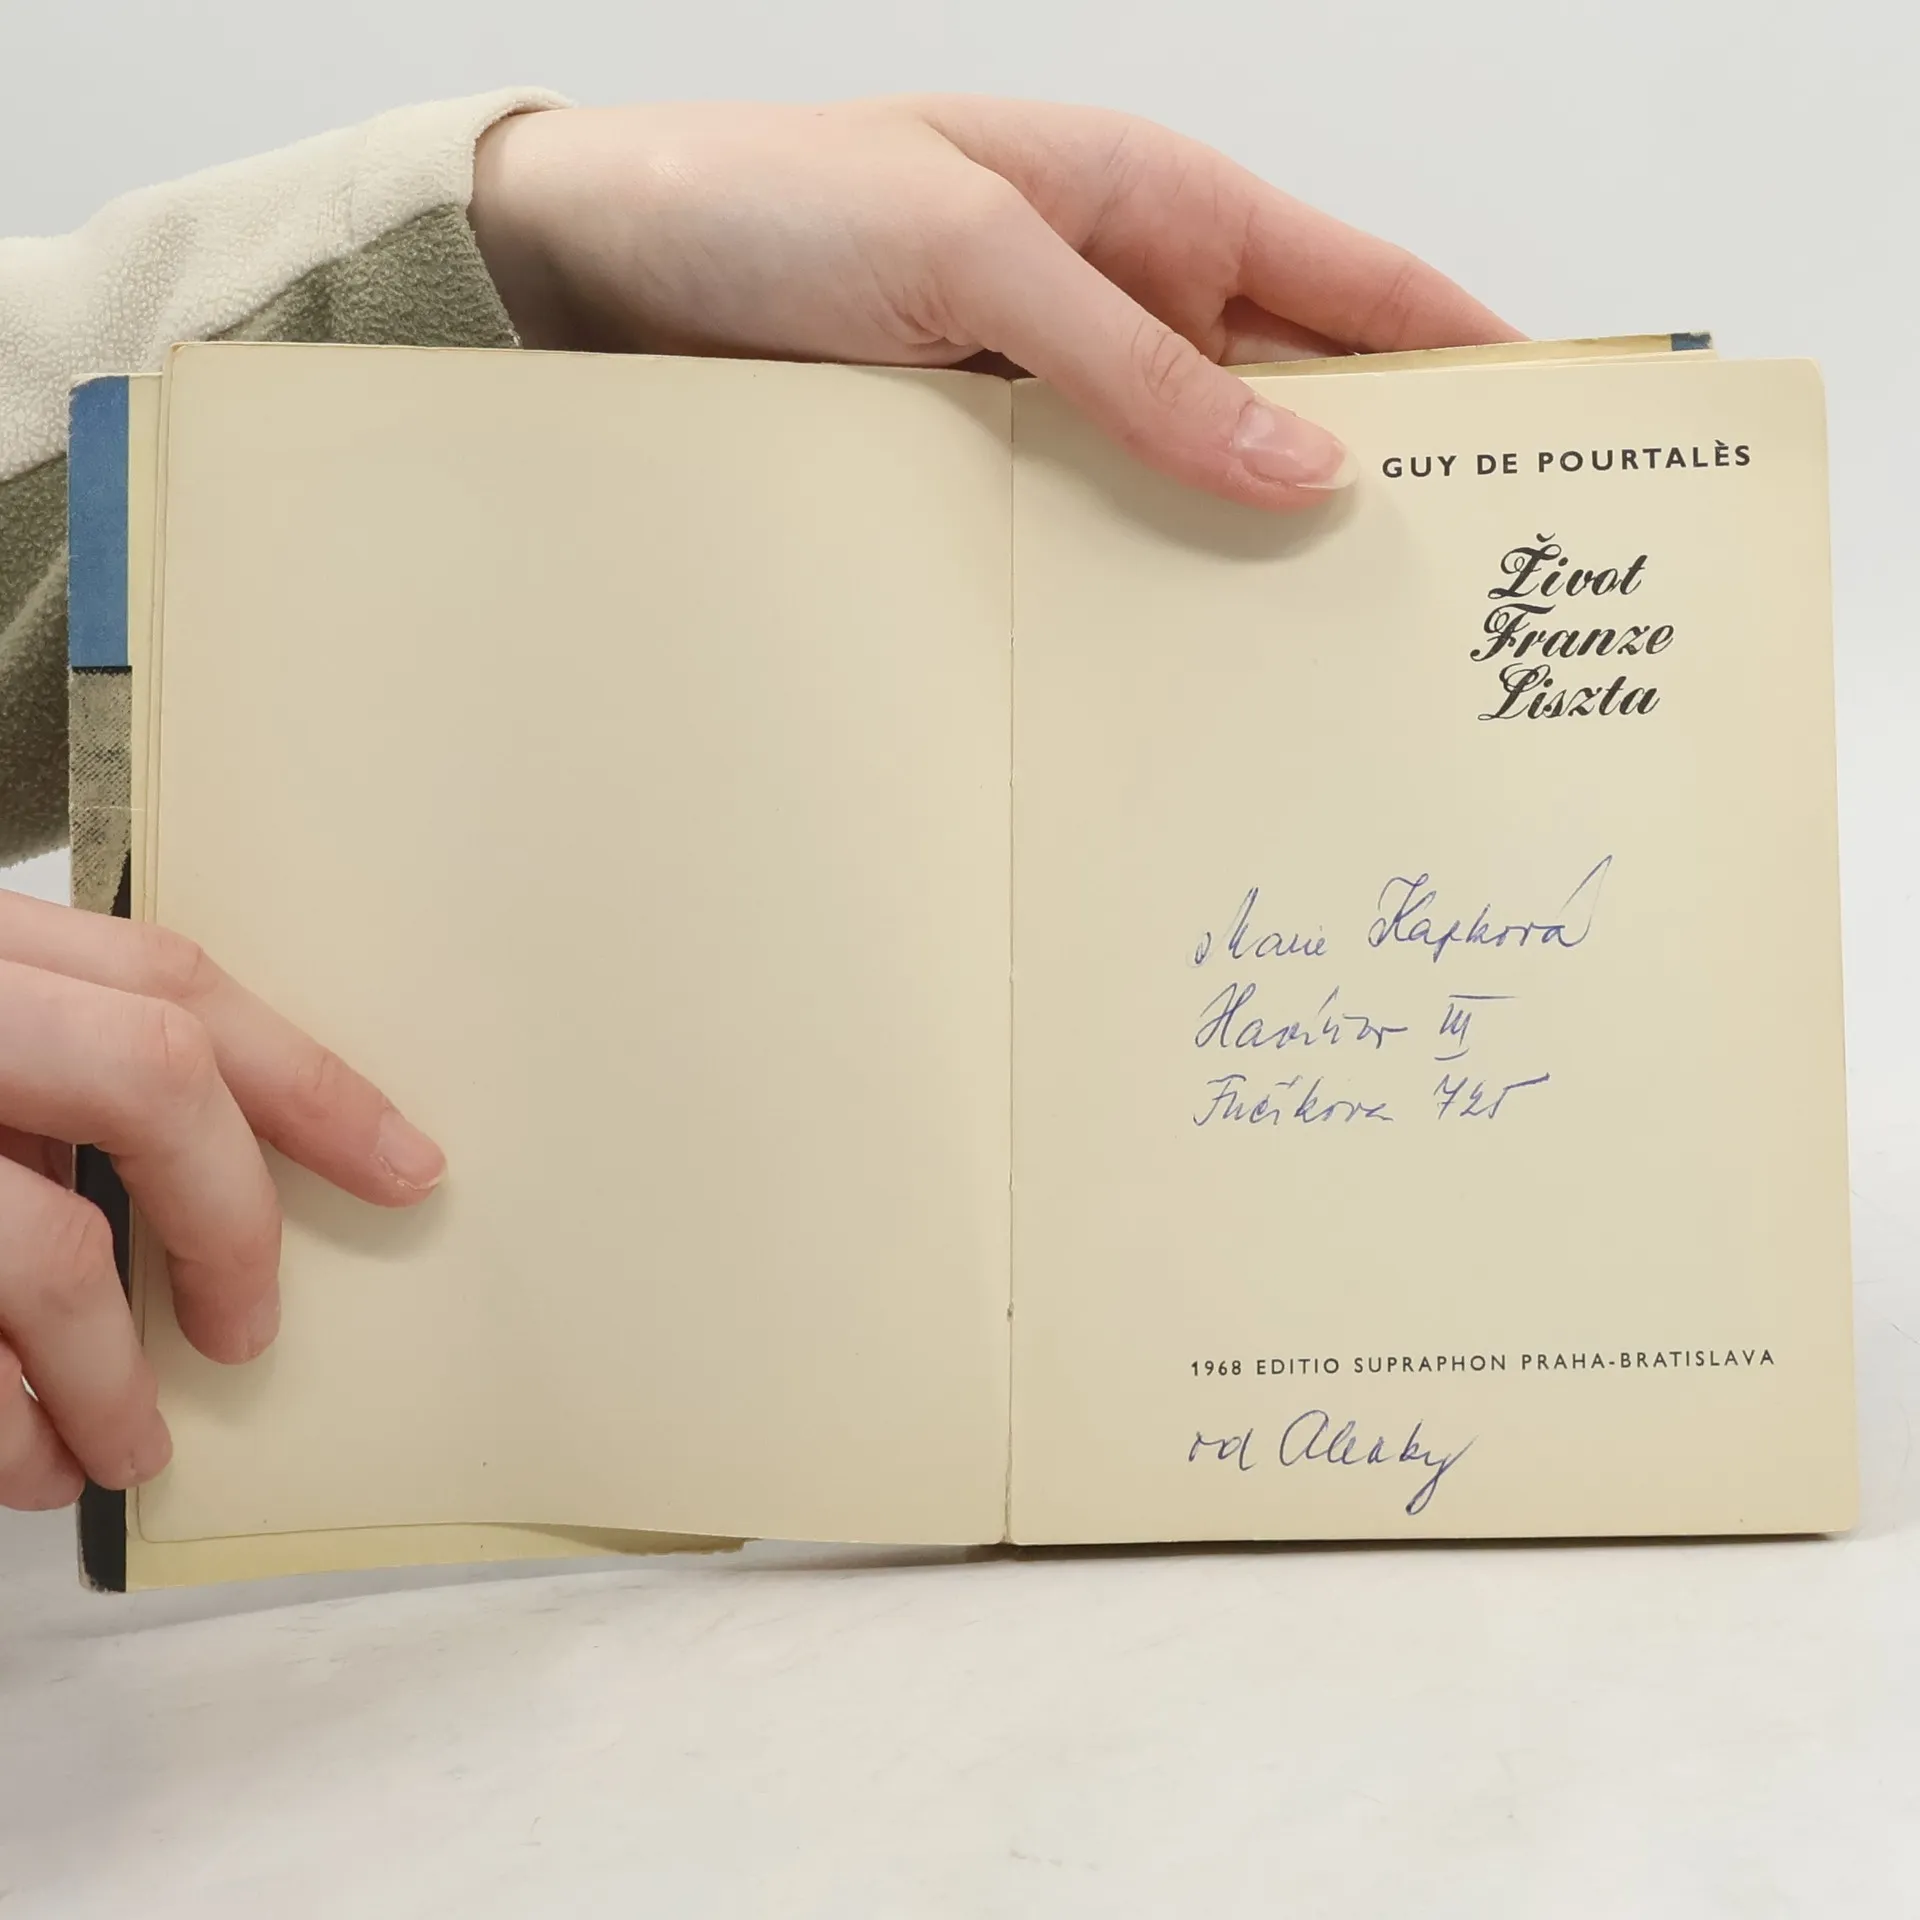 GUY DE POURTALÈS
Život
Franze
Liszta
Marie Kapková
Havířov III
Fučíkova 725
1968 EDITIO SUPRAPHON PRAHA-BRATISLAVA
od Alenky